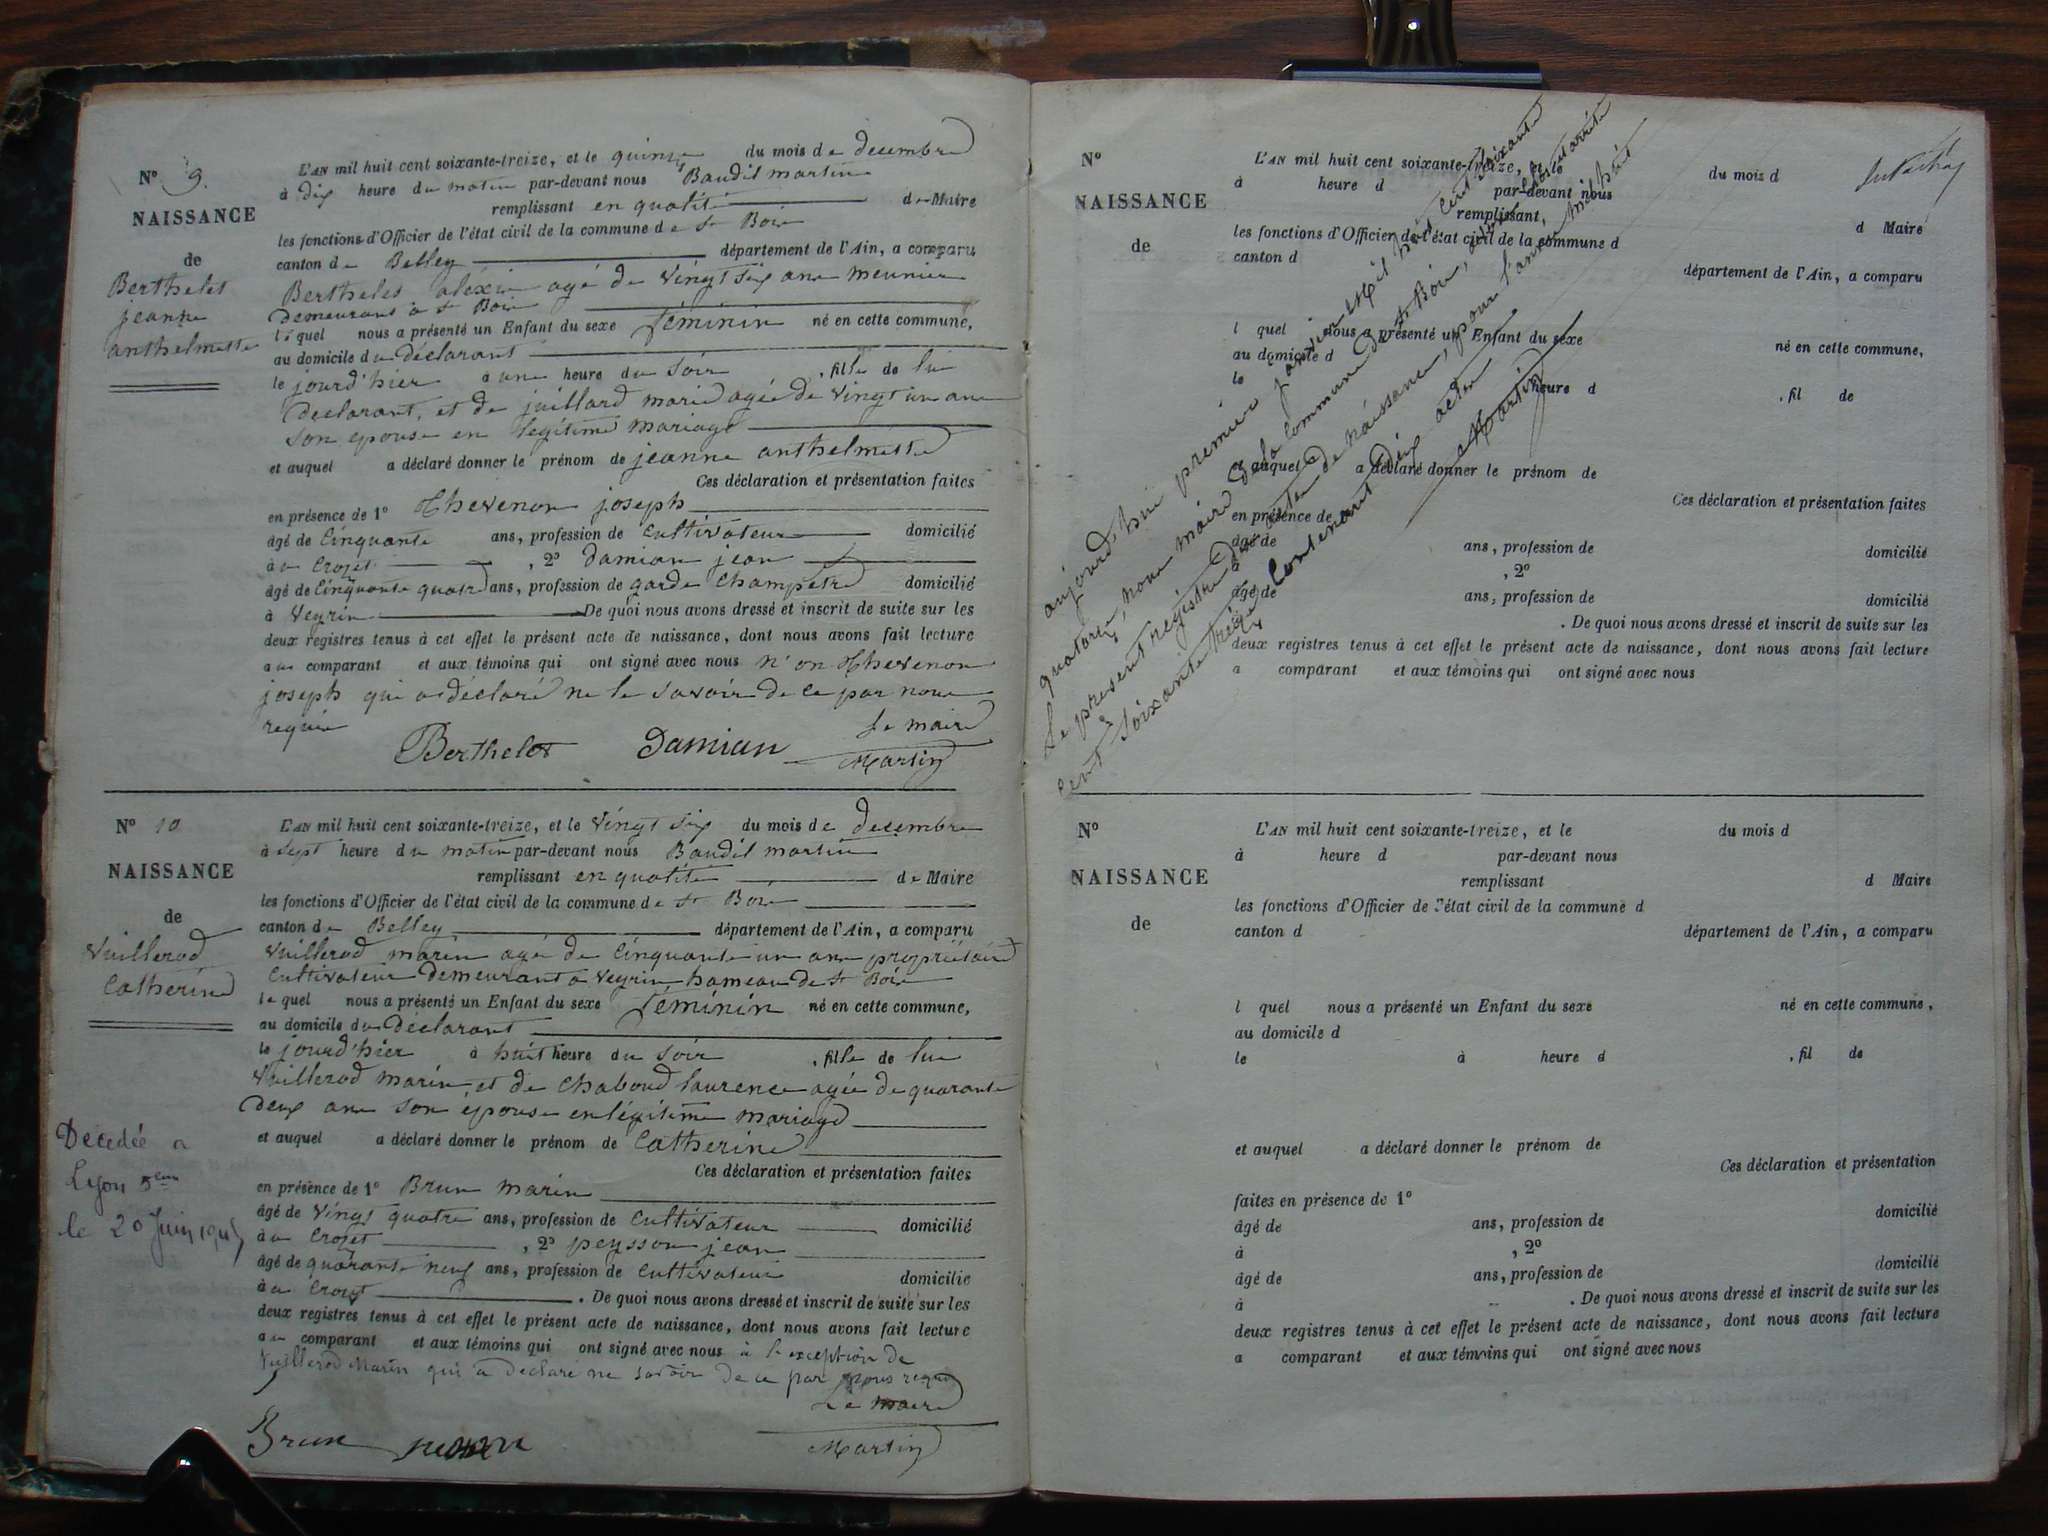 N° 9.
NAISSANCE
de
Berthelet
jeanne
anthelmette
L'AN mil huit cent soixante-treize, et le quinze du mois de decembre
à dix heure du matin par-devant nous Baudit martin
remplissant en qualité de Maire
les fonctions d'Officier de l'état civil de la commune de St Bois
canton de Belley département de l'Ain, a comparu
Berthelet alexis agé de vingt six ans meunier
demeurant à St Bois
lequel nous a présenté un Enfant du sexe féminin né en cette commune,
au domicile du déclarant
le jourd'hier à une heure du soir , fille de lui
declarant, et de juillard marie agée de vingt un ans
son epouse en legitime mariage
et auquel a déclaré donner le prénom de jeanne anthelmette
Ces déclaration et présentation faites
en présence de 1° Thevenon joseph
âgé de Cinquante ans, profession de Cultivateur domicilié
à u Crozet , 2° Damian jean
âgé de Cinquante quatre ans, profession de garde Champetre domicilié
à Veyrin De quoi nous avons dressé et inscrit de suite sur les
deux registres tenus à cet effet le présent acte de naissance, dont nous avons fait lecture
au comparant et aux témoins qui ont signé avec nous n'on Thevenon
joseph qui a déclaré ne le savoir de ce par nous
requis
Le maire
Berthelet Damian Martin
N° 10
NAISSANCE
de
Vuillerod
Catherine
Decedée a
Lyon 5eme
le 20 Juin
L'AN mil huit cent soixante-treize, et le Vingt six du mois de decembre
à Sept heure du matin par-devant nous Baudit martin
remplissant en qualité de Maire
les fonctions d'Officier de l'état civil de la commune de St Bois
canton de Belley département de l'Ain, a comparu
Vuillerod marin agé de Cinquante un ans propriétaire
Cultivateur demeurant a Veyrin hameau de St Bois
lequel nous a présenté un Enfant du sexe féminin né en cette commune,
au domicile du déclarant
le jourd'hier à huit heure du soir , fille de lui
Vuillerod marin et de Chaboud laurence agée de quarante
deux ans son épouse en légitime mariage
et auquel a déclaré donner le prénom de Catherine
Ces déclaration et présentation faites
en présence de 1° Brun marin
âgé de Vingt quatre ans, profession de Cultivateur domicilié
à u Crozet , 2° peysson jean
âgé de quarante neuf ans, profession de Cultivateur domicilié
à u Crozet . De quoi nous avons dressé et inscrit de suite sur les
deux registres tenus à cet effet le présent acte de naissance, dont nous avons fait lecture
au comparant et aux témoins qui ont signé avec nous à l'exception de
Vuillerod Marin qui a declaré ne savoir de ce par nous requis
Le maire
Brun Martin
N°
NAISSANCE
de
L'AN mil huit cent soixante-treize, et le du mois d
à heure d par-devant nous
remplissant d Maire
les fonctions d'Officier de l'état civil de la commune d
canton d département de l'Ain, a comparu
l quel nous a présenté un Enfant du sexe né en cette commune,
au domicile d
le heure d , fil de
et auquel a déclaré donner le prénom de
Ces déclaration et présentation faites
en présence de
âgé de ans, profession de domicilié
, 2°
âgé de ans, profession de domicilié
. De quoi nous avons dressé et inscrit de suite sur les
deux registres tenus à cet effet le présent acte de naissance, dont nous avons fait lecture
a comparant et aux témoins qui ont signé avec nous
aujourd'hui premier janvier Mil huit Cent soixante
quatorze, nous maire de la Commune de St Bois, avons clos et arrêté
Le present régistre des actes de naissance, pour l'année mil huit
Cent Soixante treize Contenant dix actes
Martin
N°
NAISSANCE
de
L'AN mil huit cent soixante-treize, et le du mois d
à heure d par-devant nous
remplissant d Maire
les fonctions d'Officier de l'état civil de la commune d
canton d département de l'Ain, a comparu
l quel nous a présenté un Enfant du sexe né en cette commune,
au domicile d
le à heure d , fil de
et auquel a déclaré donner le prénom de
Ces déclaration et présentation
faites en présence de 1°
âgé de ans, profession de domicilié
à , 2°
âgé de ans, profession de domicilié
à . De quoi nous avons dressé et inscrit de suite sur les
deux registres tenus à cet effet le présent acte de naissance, dont nous avons fait lecture
a comparant et aux témoins qui ont signé avec nous